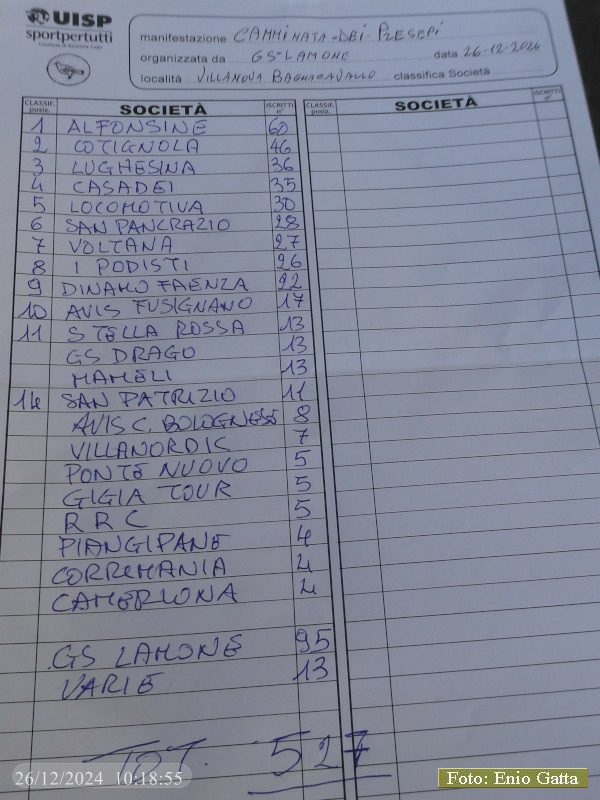 UISP
sportpertutti
manifestazione CAMMINATA-DEI-PRESEPI
organizzata da GS-LAMONE data 26-12-2024
località VILLANOVA BAGNACAVALLO classifica Società
CLASSIF. posiz. SOCIETÀ ISCRITTI n° CLASSIF. posiz. SOCIETÀ ISCRITTI n°
1 ALFONSINE 60
2 COTIGNOLA 46
3 LUGHESINA 36
4 CASADEI 35
5 LOCOMOTIVA 30
6 SAN PANCRAZIO 28
7 VOLTANA 27
8 I PODISTI 26
9 DINAMO FAENZA 22
10 AVIS FUSIGNANO 17
11 STELLA ROSSA 13
GS DRAGO 13
MAMELI 13
14 SAN PATRIZIO 11
AVIS C. BOLOGNESE 8
VILLANORDIC 7
PONTE NUOVO 5
GIGIA TOUR 5
RRC 5
PIANGIPANE 4
CORRIMANIA 4
CAMERLONA 4
GS LAMONE 95
VARIE 13
TOT. 527
26/12/2024 10:18:55
Foto: Enio Gatta